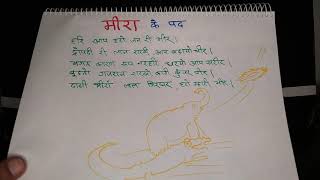 मीरा के पद
हरि आप हरो जन री भीर।
द्रोपदी री लाज राखी, आप बढ़ायो चीर।
भगत कारण रूप नरहरि, धरयो आप सरीर।
बूढ़तो गजराज राख्यो काटी कुंजर पीर।
दासी मीराँ लाल गिरधर हरो म्हारी भीर।